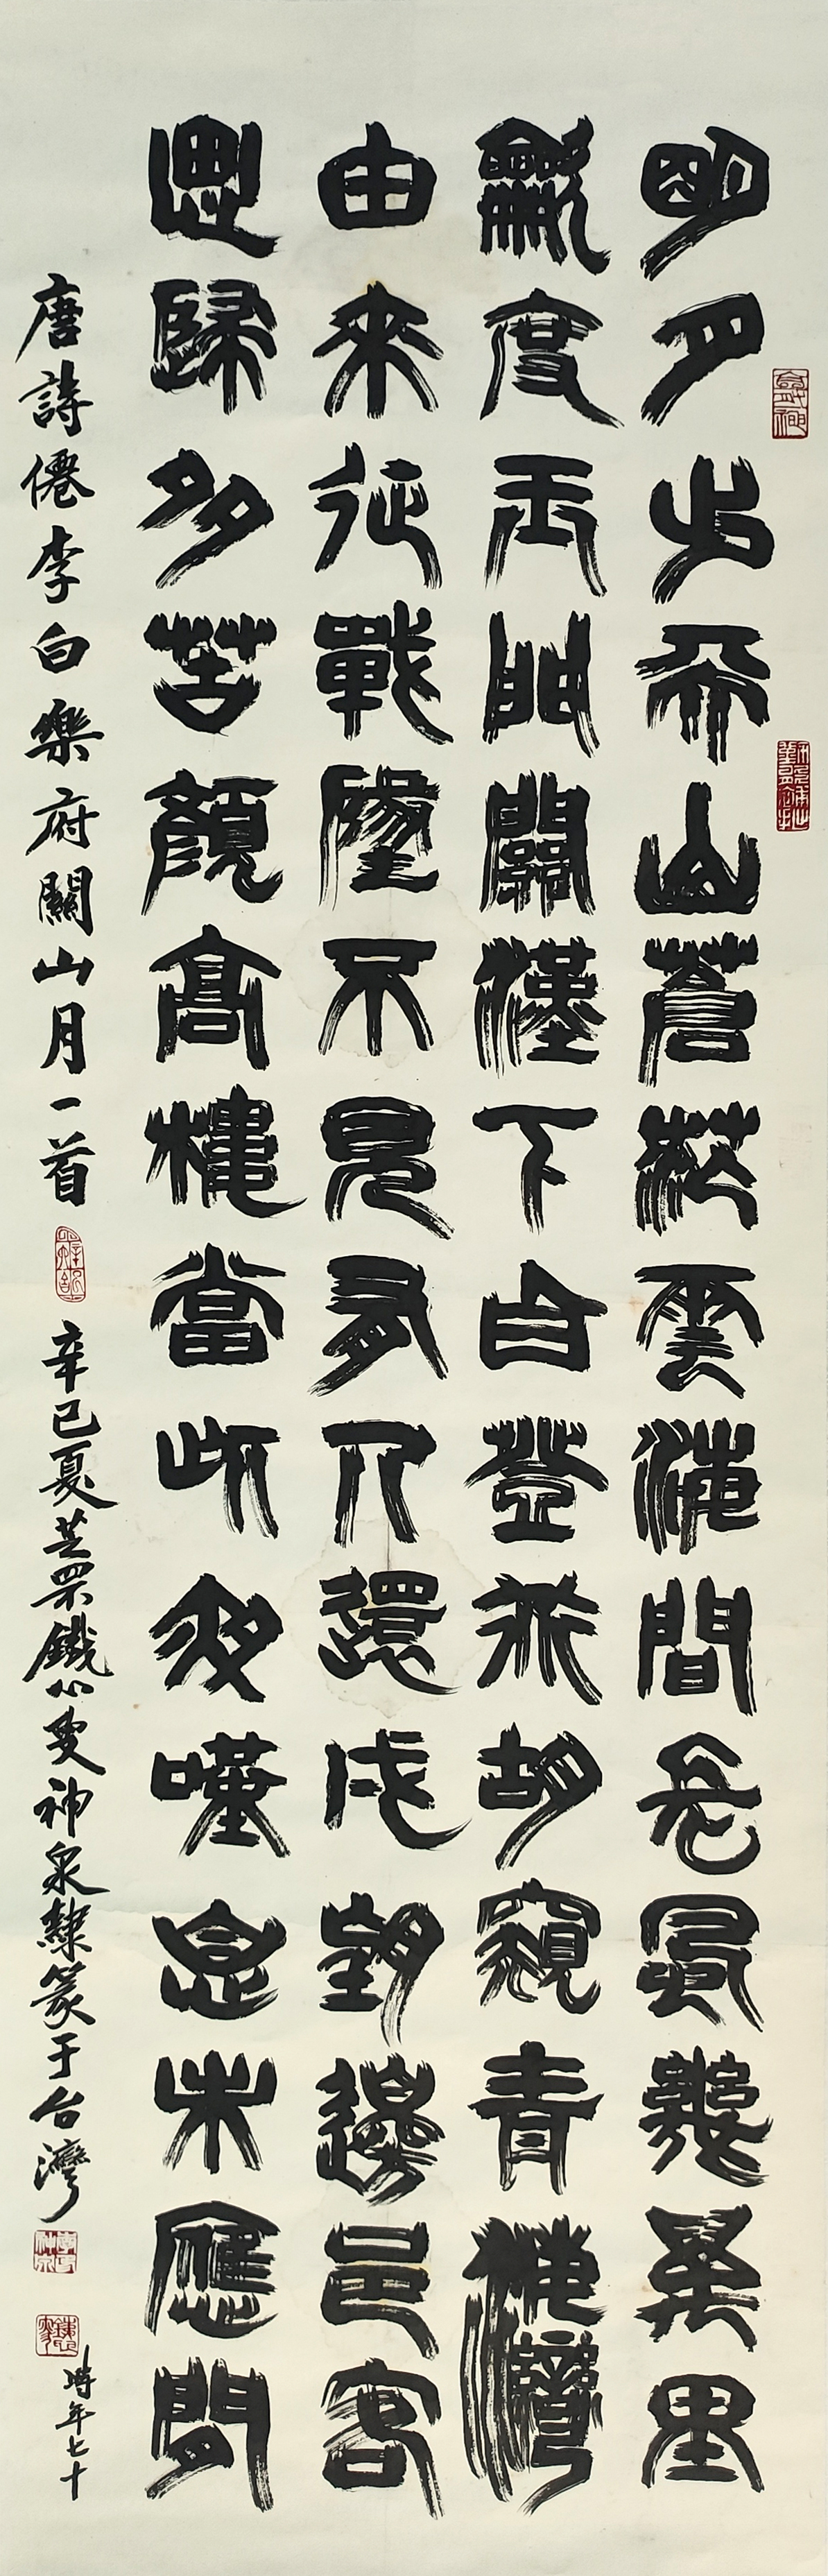 明月出天山蒼茫雲海間長風幾萬里
龡度玉門關漢下白登道胡窺青海灣
由來征戰墬不見有人還戍望邊邑客
思歸多苦顏高樓當此夜嘆息未應閒
唐詩僊李白樂府關山月一首 辛巳夏芝罘鐵心叟神泉隸篆于台灣
時年七十